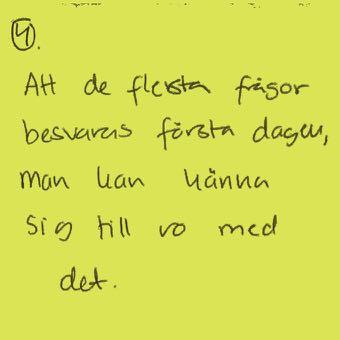 4.
Att de flesta frågor
besvaras första dagen,
man kan känna
sig till ro med
det.